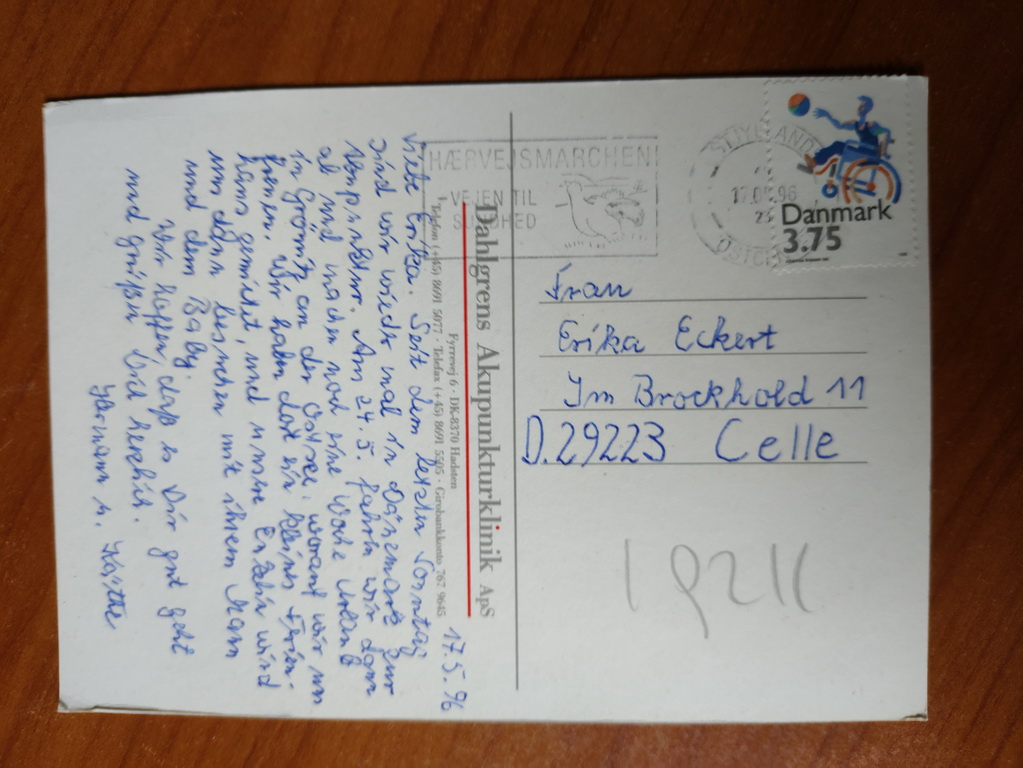 17.5.96
Liebe Erika. Seit dem letzten Sonntag
sind wir wieder mal in Dänemark zur
Akupunktur. Am 24.5. fahren wir dann
ab und machen noch eine Woche Urlaub
in Grömitz an der Ostsee, worauf wir uns
freuen. Wir haben dort ein kleines Ferien-
haus gemietet, und unsere Enkelin wird
uns dann besuchen mit ihrem Mann
und dem Baby.
Wir hoffen, dass es Dir gut geht
und grüßen Dich herzlich.
Hermann u. Käthe
Dahlgrens Akupunkturklinik ApS
Fyrrevej 6 · DK-8370 Hadsten
Telefon (+45) 8691 5077 · Telefax (+45) 8691 5505 · Girobankkonto 767 9645
HÆRVEJSMARCHEN
VEJEN TIL
SUNDHED
ØSTJYLLANDS
17.05.96
Danmark
3.75
Frau
Erika Eckert
Im Brockhold 11
D.29223 Celle